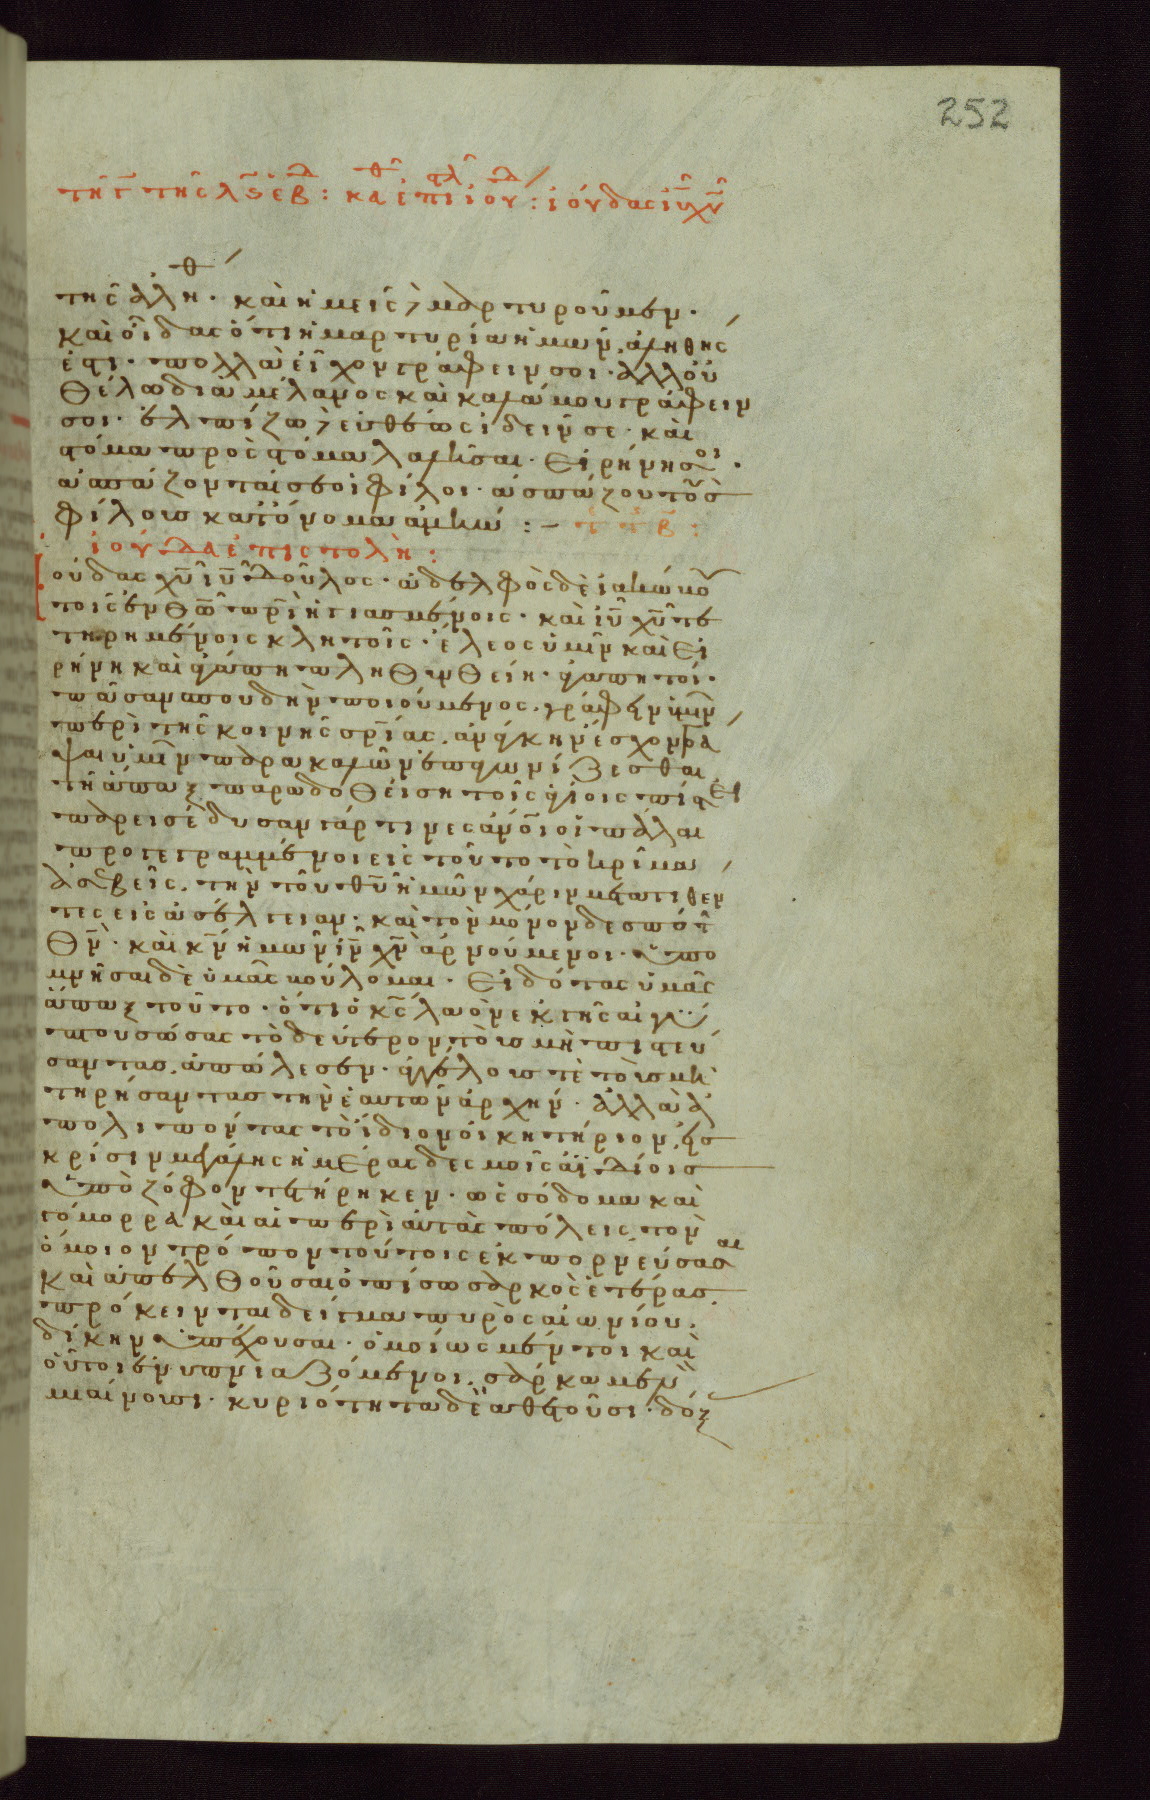 252
τῇ γ τῆς λϛ ἑβδ : καθ ἐπιφλ ἰουδ : ἰούδας ἰῦ χῦ
τῆς ἀληθ · καὶ ἡμεῖς μαρτυροῦμεν ·
καὶ οἶδας ὅτι ἡ μαρτυρία ἡμῶν ἀληθής
ἐστι · πολλὰ εἶχον γράφειν σοι · ἀλλ οὐ
θέλω διὰ μέλανος καὶ καλάμου γράφειν
σοι · ἐλπίζω εὐθέως ἰδεῖν σε · καὶ
στόμα πρὸς στόμα λαλῆσαι · εἰρήνη σοι ·
ἀσπάζονταί σε οἱ φίλοι · ἀσπάζου τοὺς
φίλους κατ ὄνομα ἀμήν : –
ἰούδα ἐπιστολὴ :
ἰούδας χῦ ἰῦ δοῦλος · ἀδελφὸς δὲ ἰακώβου
τοῖς ἐν θῶ πρὶ ἡγιασμένοις · καὶ ἰῦ χῦ τε
τηρημένοις κλητοῖς · ἔλεος ὑμῖν καὶ εἰ
ρήνη καὶ ἀγάπη πληθυνθείη · ἀγαπητοί ·
πᾶσαν σπουδὴν ποιούμενος γράφειν ὑμῖν
περὶ τῆς κοινῆς σρίας ἀνάγκην ἔσχον γρά
ψαι ὑμῖν παρακαλῶν ἐπαγωνίζεσθαι
τῇ ἅπαξ παραδοθείσῃ τοῖς ἁγίοις πίστει
παρεισέδυσαν γάρ τινες ἀνοι οἱ πάλαι
προγεγραμμένοι εἰς τοῦτο τὸ κρῖμα
ἀσεβεῖς · τὴν τοῦ θῦ ἡμῶν χάριν μετατιθέν
τες εἰς ἀσέλγειαν · καὶ τὸν μόνον δεσπότ
θν · καὶ κν ἡμῶν ἰν χν ἀρνούμενοι · ὑπο
μνῆσαι δὲ ὑμᾶς βούλομαι · εἰδότας ὑμᾶς
ἅπαξ τοῦτο · ὅτι ὁ κς λαὸν ἐκ γῆς αἰγύ
πτου σώσας τὸ δεύτερον τοὺς μὴ πιστεύ
σαντας ἀπώλεσεν · ἀγγέλους τὲ τοὺς μὴ
τηρήσαντας τὴν ἑαυτῶν ἀρχήν · ἀλλὰ ἀ
πολιπόντας τὸ ἴδιον οἰκητήριον εἰς
κρίσιν μεγάλης ἡμέρας δεσμοῖς ἀϊδίοις
ὑπὸ ζόφον τετήρηκεν · ὡς σόδομα καὶ
γόμορρα καὶ αἱ περὶ αὐτὰς πόλεις τὸν
ὅμοιον τρόπον τούτοις ἐκπορνεύσασαι
καὶ ἀπελθοῦσαι ὀπίσω σαρκὸς ἑτέρας
πρόκεινται δεῖγμα πυρὸς αἰωνίου
δίκην ὑπέχουσαι · ὁμοίως μέντοι καὶ
οὗτοι ἐνυπνιαζόμενοι σάρκα μὲν
μιαίνουσι · κυριότητα δὲ ἀθετοῦσι · δόξ